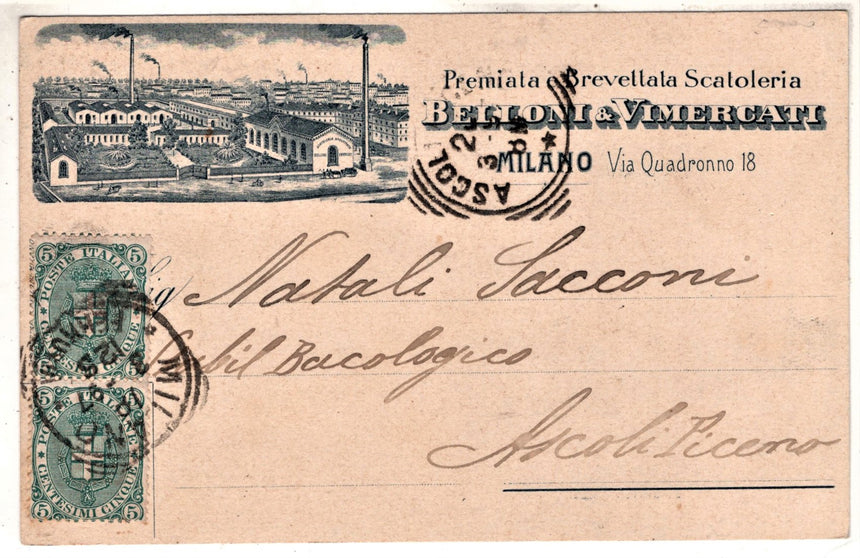 Premiata e Brevettata Scatoleria
BELLONI & VIMERCATI
MILANO Via Quadronno 18
ASCOLI
POSTE ITALIANE
CENTESIMI CINQUE
5 5
5 5
Natali Sacconi
Stabil Bacologico
Ascoli Piceno
MIL
POSTE ITALIANE
CENTESIMI CINQUE
5 5
5 5